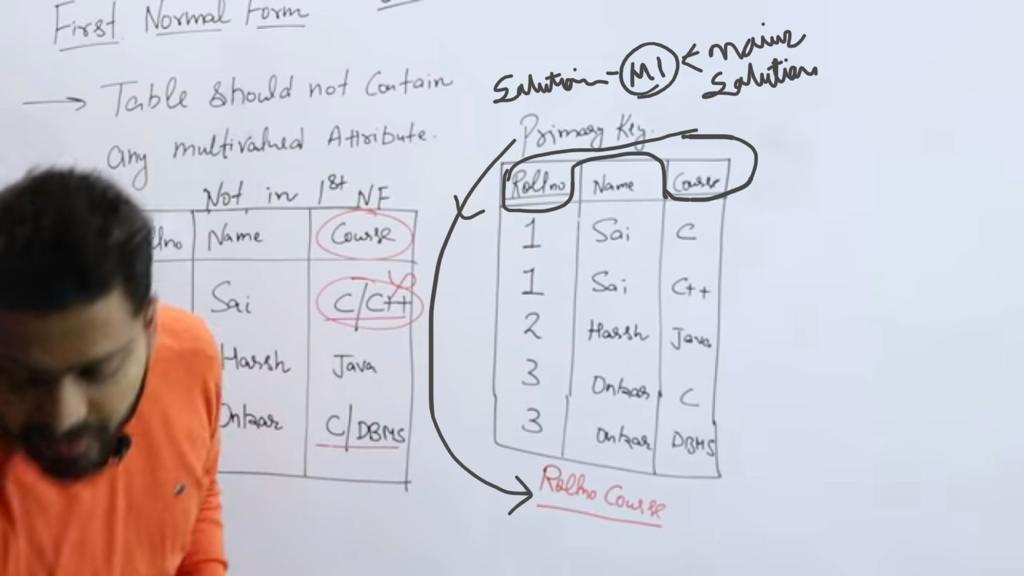 First Normal Form
→ Table should not Contain
any multivalued Attribute.
Not in 1st NF
Name Course
Sai C/C++
Harsh Java
Onkar C/DBMS
Solution - M1
Solution
Primary Key.
Rollno Name Course
1 Sai C
1 Sai C++
2 Harsh Java
3 Onkar C
3 Onkar DBMS
Rollno Course